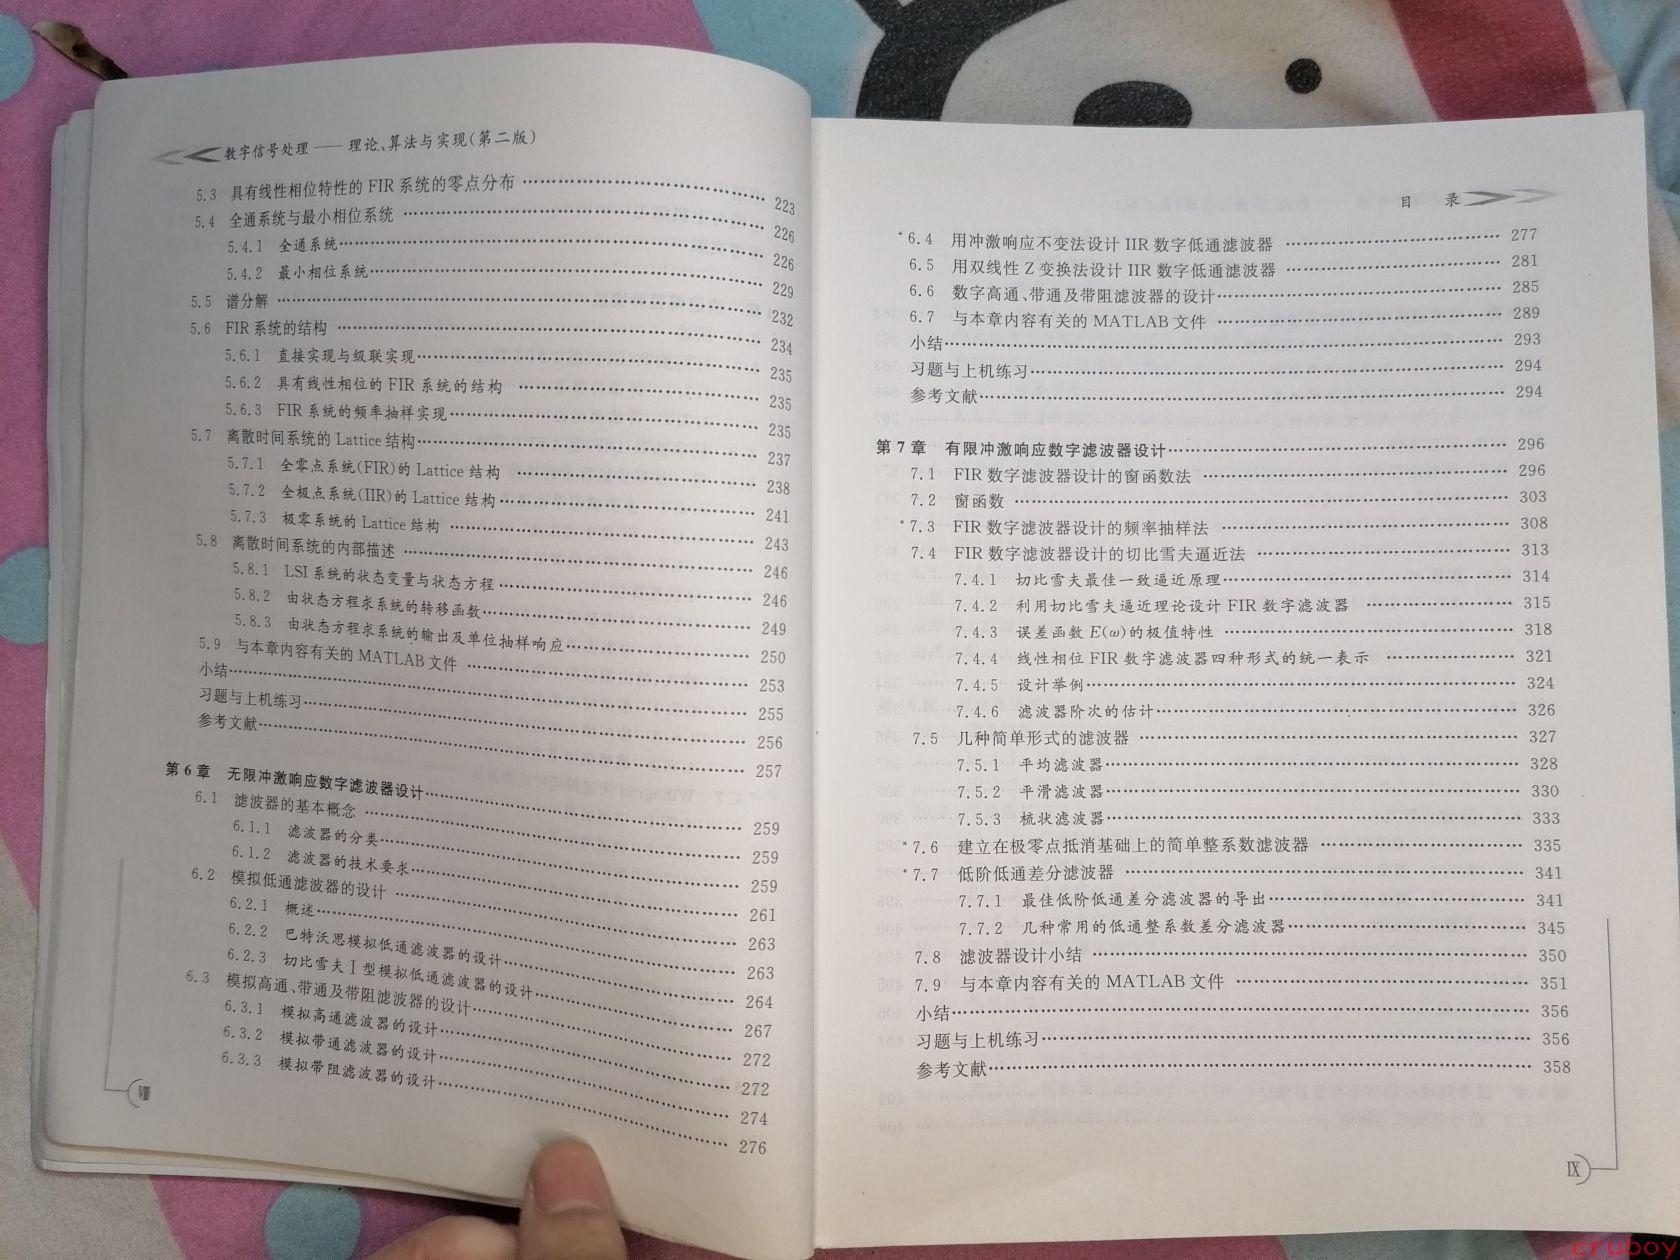 数字信号处理——理论、算法与实现(第二版)
5.3 具有线性相位特性的 FIR 系统的零点分布 …… 223
5.4 全通系统与最小相位系统 …… 226
5.4.1 全通系统 …… 226
5.4.2 最小相位系统 …… 229
5.5 谱分解 …… 232
5.6 FIR 系统的结构 …… 234
5.6.1 直接实现与级联实现 …… 235
5.6.2 具有线性相位的 FIR 系统的结构 …… 235
5.6.3 FIR 系统的频率抽样实现 …… 235
5.7 离散时间系统的 Lattice 结构 …… 237
5.7.1 全零点系统(FIR)的 Lattice 结构 …… 238
5.7.2 全极点系统(IIR)的 Lattice 结构 …… 241
5.7.3 极零系统的 Lattice 结构 …… 243
5.8 离散时间系统的内部描述 …… 246
5.8.1 LSI 系统的状态变量与状态方程 …… 246
5.8.2 由状态方程求系统的转移函数 …… 249
5.8.3 由状态方程求系统的输出及单位抽样响应 …… 250
5.9 与本章内容有关的 MATLAB 文件 …… 253
小结 …… 255
习题与上机练习 …… 256
参考文献 …… 257
第 6 章 无限冲激响应数字滤波器设计 …… 259
6.1 滤波器的基本概念 …… 259
6.1.1 滤波器的分类 …… 259
6.1.2 滤波器的技术要求 …… 261
6.2 模拟低通滤波器的设计 …… 263
6.2.1 概述 …… 263
6.2.2 巴特沃思模拟低通滤波器的设计 …… 264
6.2.3 切比雪夫Ⅰ型模拟低通滤波器的设计 …… 267
6.3 模拟高通、带通及带阻滤波器的设计 …… 272
6.3.1 模拟高通滤波器的设计 …… 272
6.3.2 模拟带通滤波器的设计 …… 274
6.3.3 模拟带阻滤波器的设计 …… 276
Ⅷ
目 录
*6.4 用冲激响应不变法设计 IIR 数字低通滤波器 …… 277
6.5 用双线性 Z 变换法设计 IIR 数字低通滤波器 …… 281
6.6 数字高通、带通及带阻滤波器的设计 …… 285
6.7 与本章内容有关的 MATLAB 文件 …… 289
小结 …… 293
习题与上机练习 …… 294
参考文献 …… 294
第 7 章 有限冲激响应数字滤波器设计 …… 296
7.1 FIR 数字滤波器设计的窗函数法 …… 296
7.2 窗函数 …… 303
*7.3 FIR 数字滤波器设计的频率抽样法 …… 308
7.4 FIR 数字滤波器设计的切比雪夫逼近法 …… 313
7.4.1 切比雪夫最佳一致逼近原理 …… 314
7.4.2 利用切比雪夫逼近理论设计 FIR 数字滤波器 …… 315
7.4.3 误差函数 E(ω)的极值特性 …… 318
7.4.4 线性相位 FIR 数字滤波器四种形式的统一表示 …… 321
7.4.5 设计举例 …… 324
7.4.6 滤波器阶次的估计 …… 326
7.5 几种简单形式的滤波器 …… 327
7.5.1 平均滤波器 …… 328
7.5.2 平滑滤波器 …… 330
7.5.3 梳状滤波器 …… 333
*7.6 建立在极零点抵消基础上的简单整系数滤波器 …… 335
*7.7 低阶低通差分滤波器 …… 341
7.7.1 最佳低阶低通差分滤波器的导出 …… 341
7.7.2 几种常用的低通整系数差分滤波器 …… 345
7.8 滤波器设计小结 …… 350
7.9 与本章内容有关的 MATLAB 文件 …… 351
小结 …… 356
习题与上机练习 …… 356
参考文献 …… 358
Ⅸ
cruboy